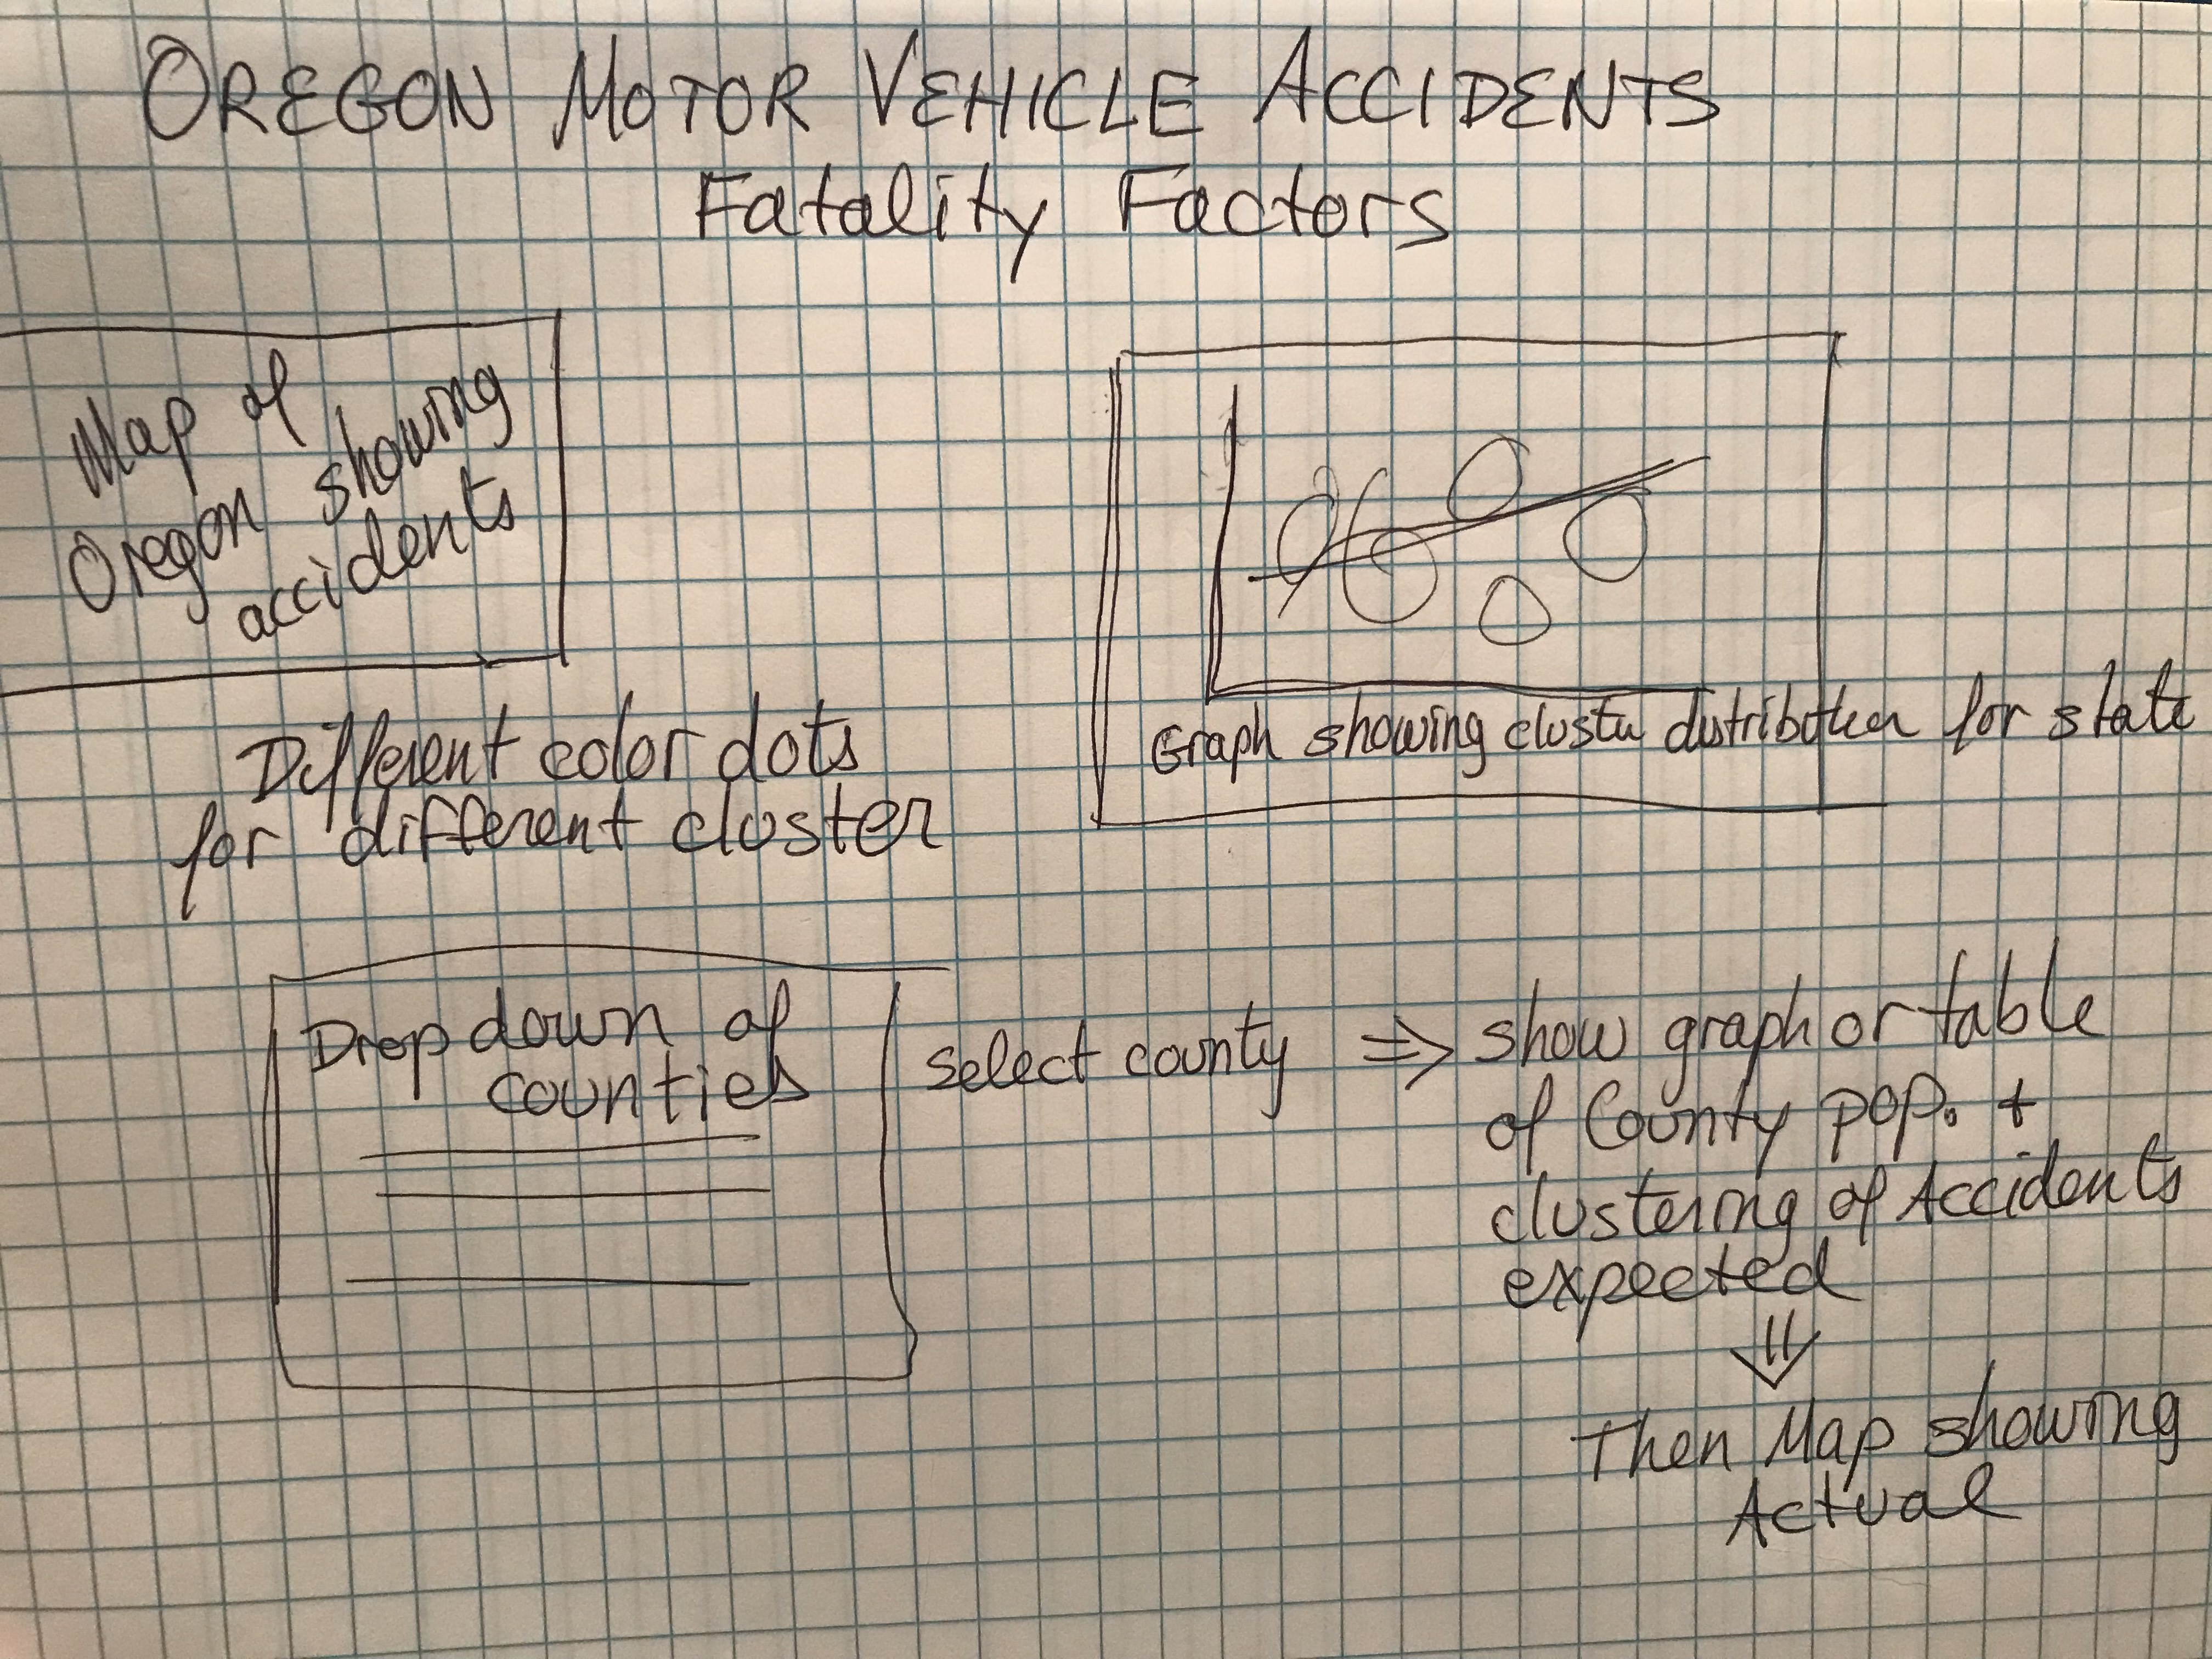 OREGON MOTOR VEHICLE ACCIDENTS
Fatality Factors
Map of
Oregon showing
accidents
Different color dots
for different cluster
Graph showing cluster distribution for state
Drop down of
counties
select county ⇒ show graph or table
of County pop. +
clustering of Accidents
expected
⇓
Then Map showing
Actual